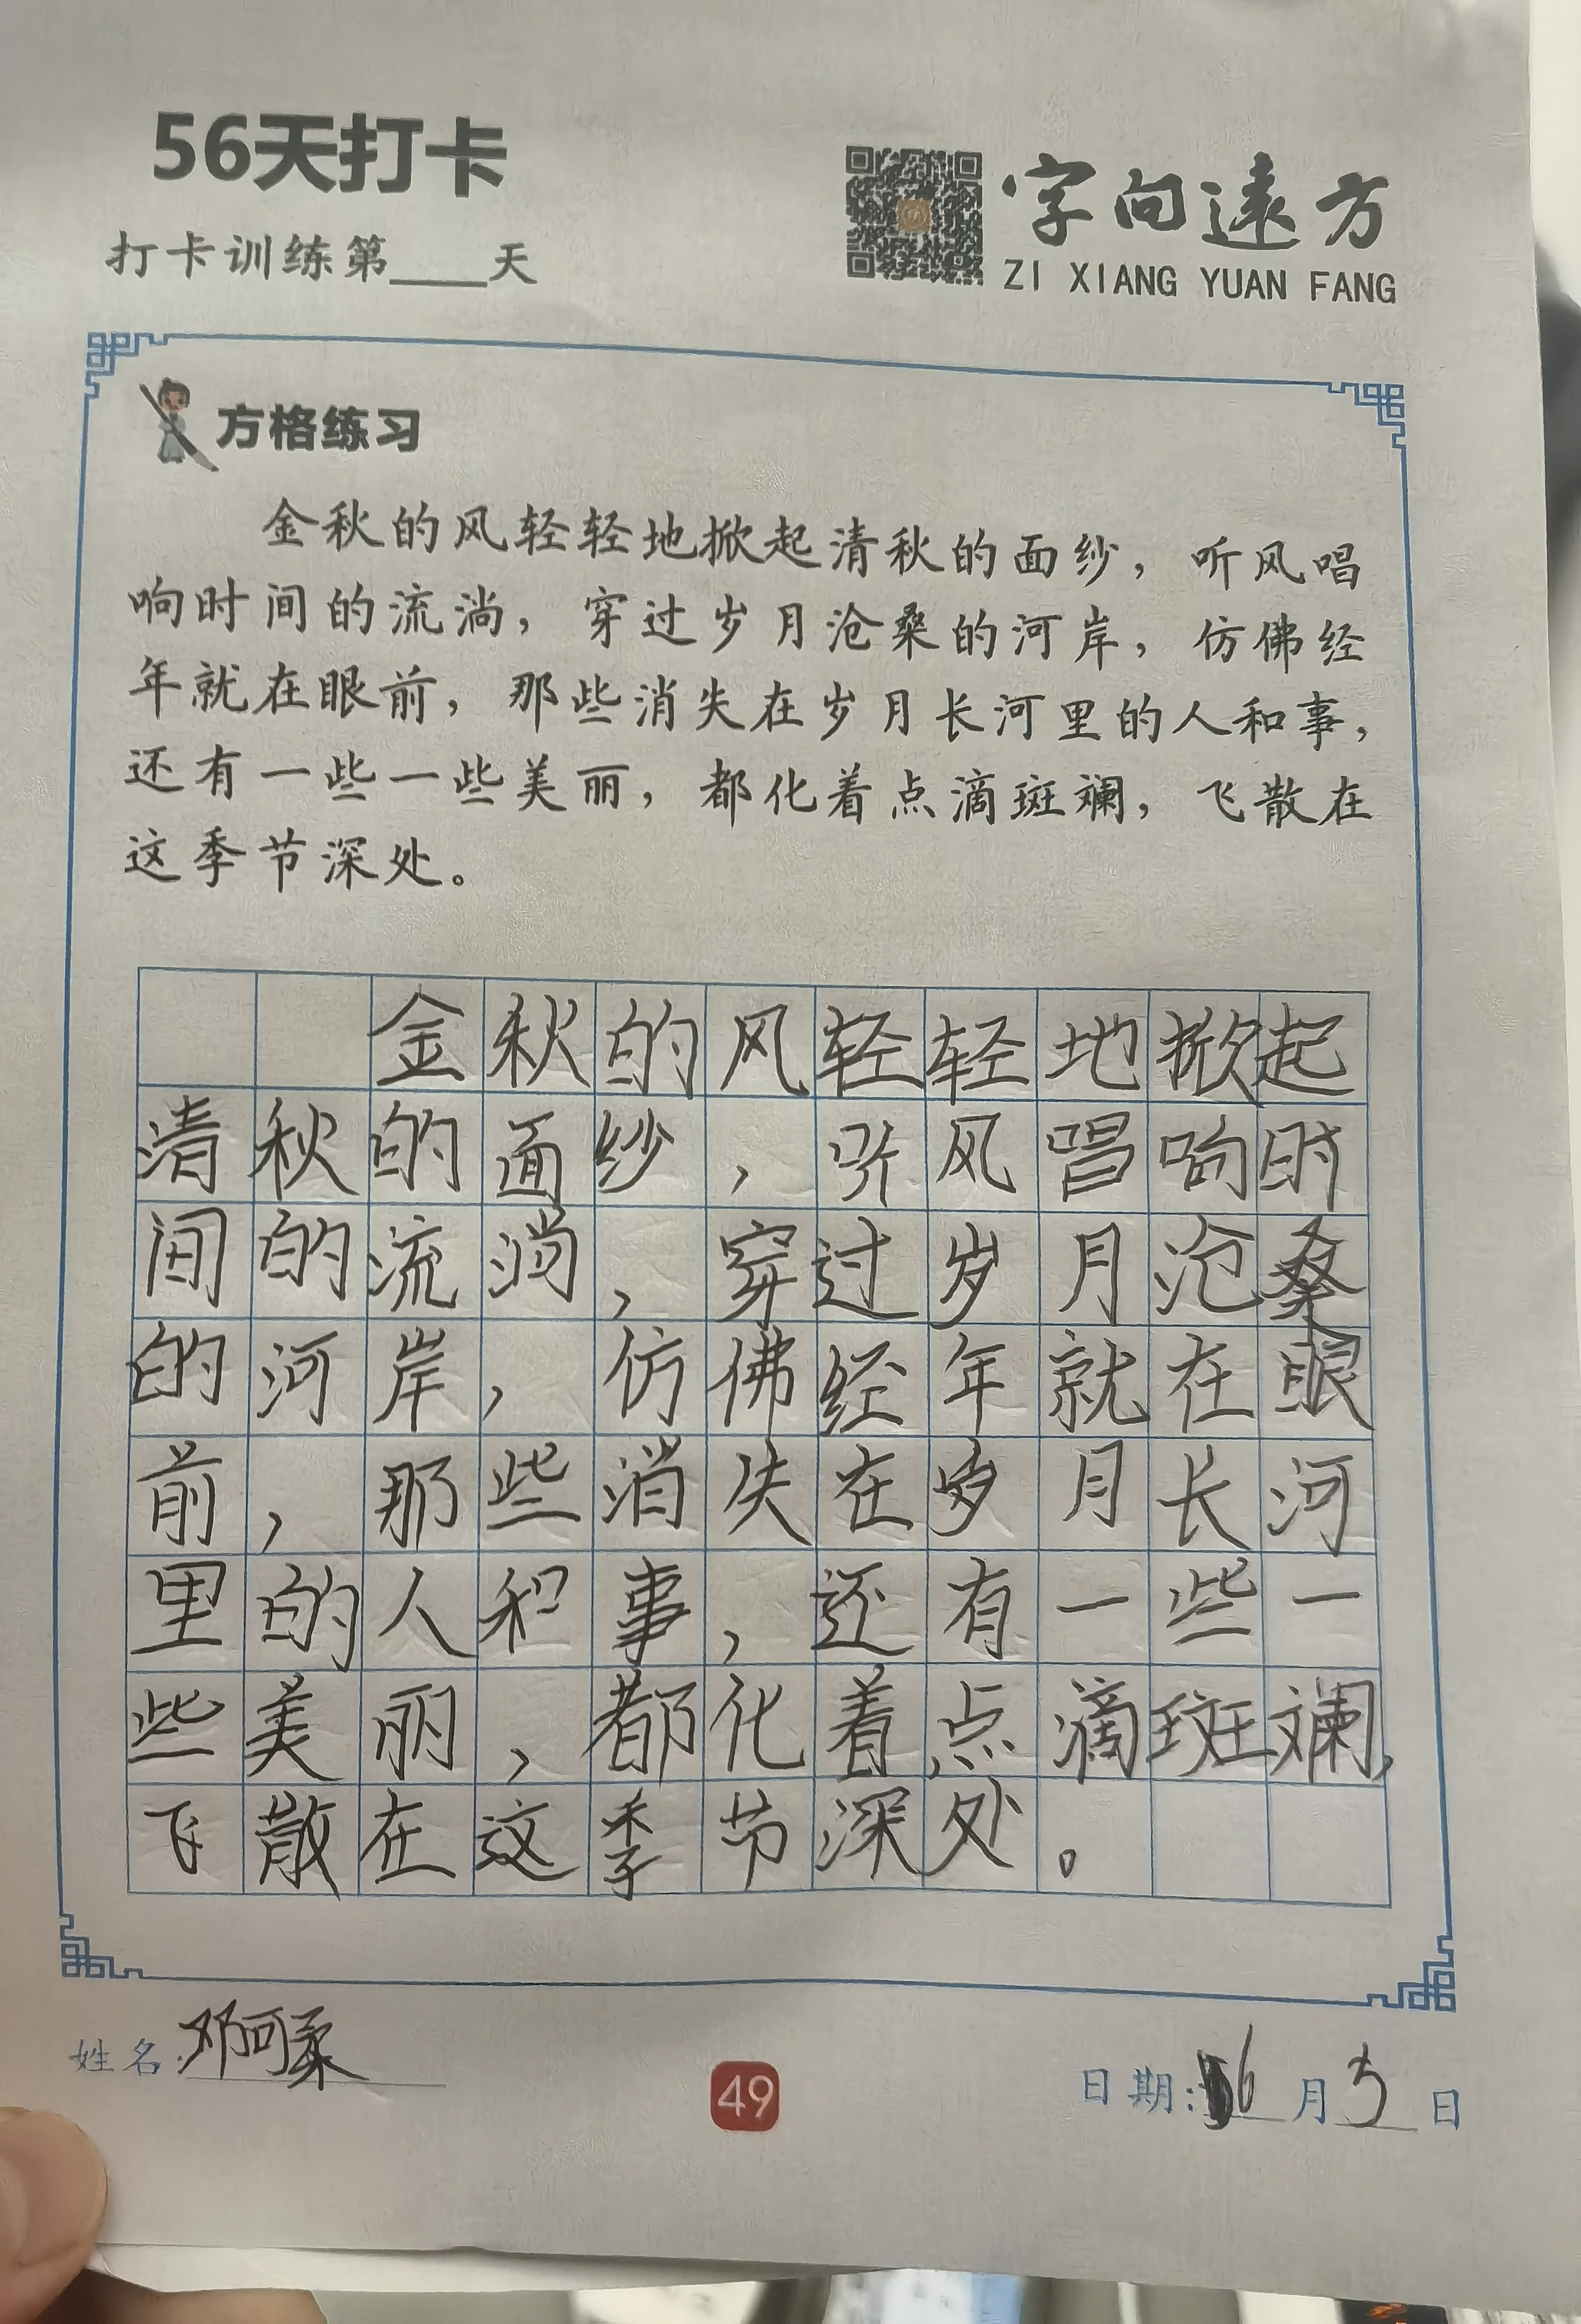 56天打卡
打卡训练第____天
字向遠方
ZI XIANG YUAN FANG
方格练习
金秋的风轻轻地掀起清秋的面纱，听风唱
响时间的流淌，穿过岁月沧桑的河岸，仿佛经
年就在眼前，那些消失在岁月长河里的人和事，
还有一些一些美丽，都化着点滴斑斓，飞散在
这季节深处。
金秋的风轻轻地掀起
清秋的面纱，听风唱响时
间的流淌，穿过岁月沧桑
的河岸，仿佛经年就在眼
前，那些消失在岁月长河
里的人和事，还有一些一
些美丽，都化着点滴斑斓，
飞散在这季节深处。
姓名:邓可柔
49
日期:6月5日